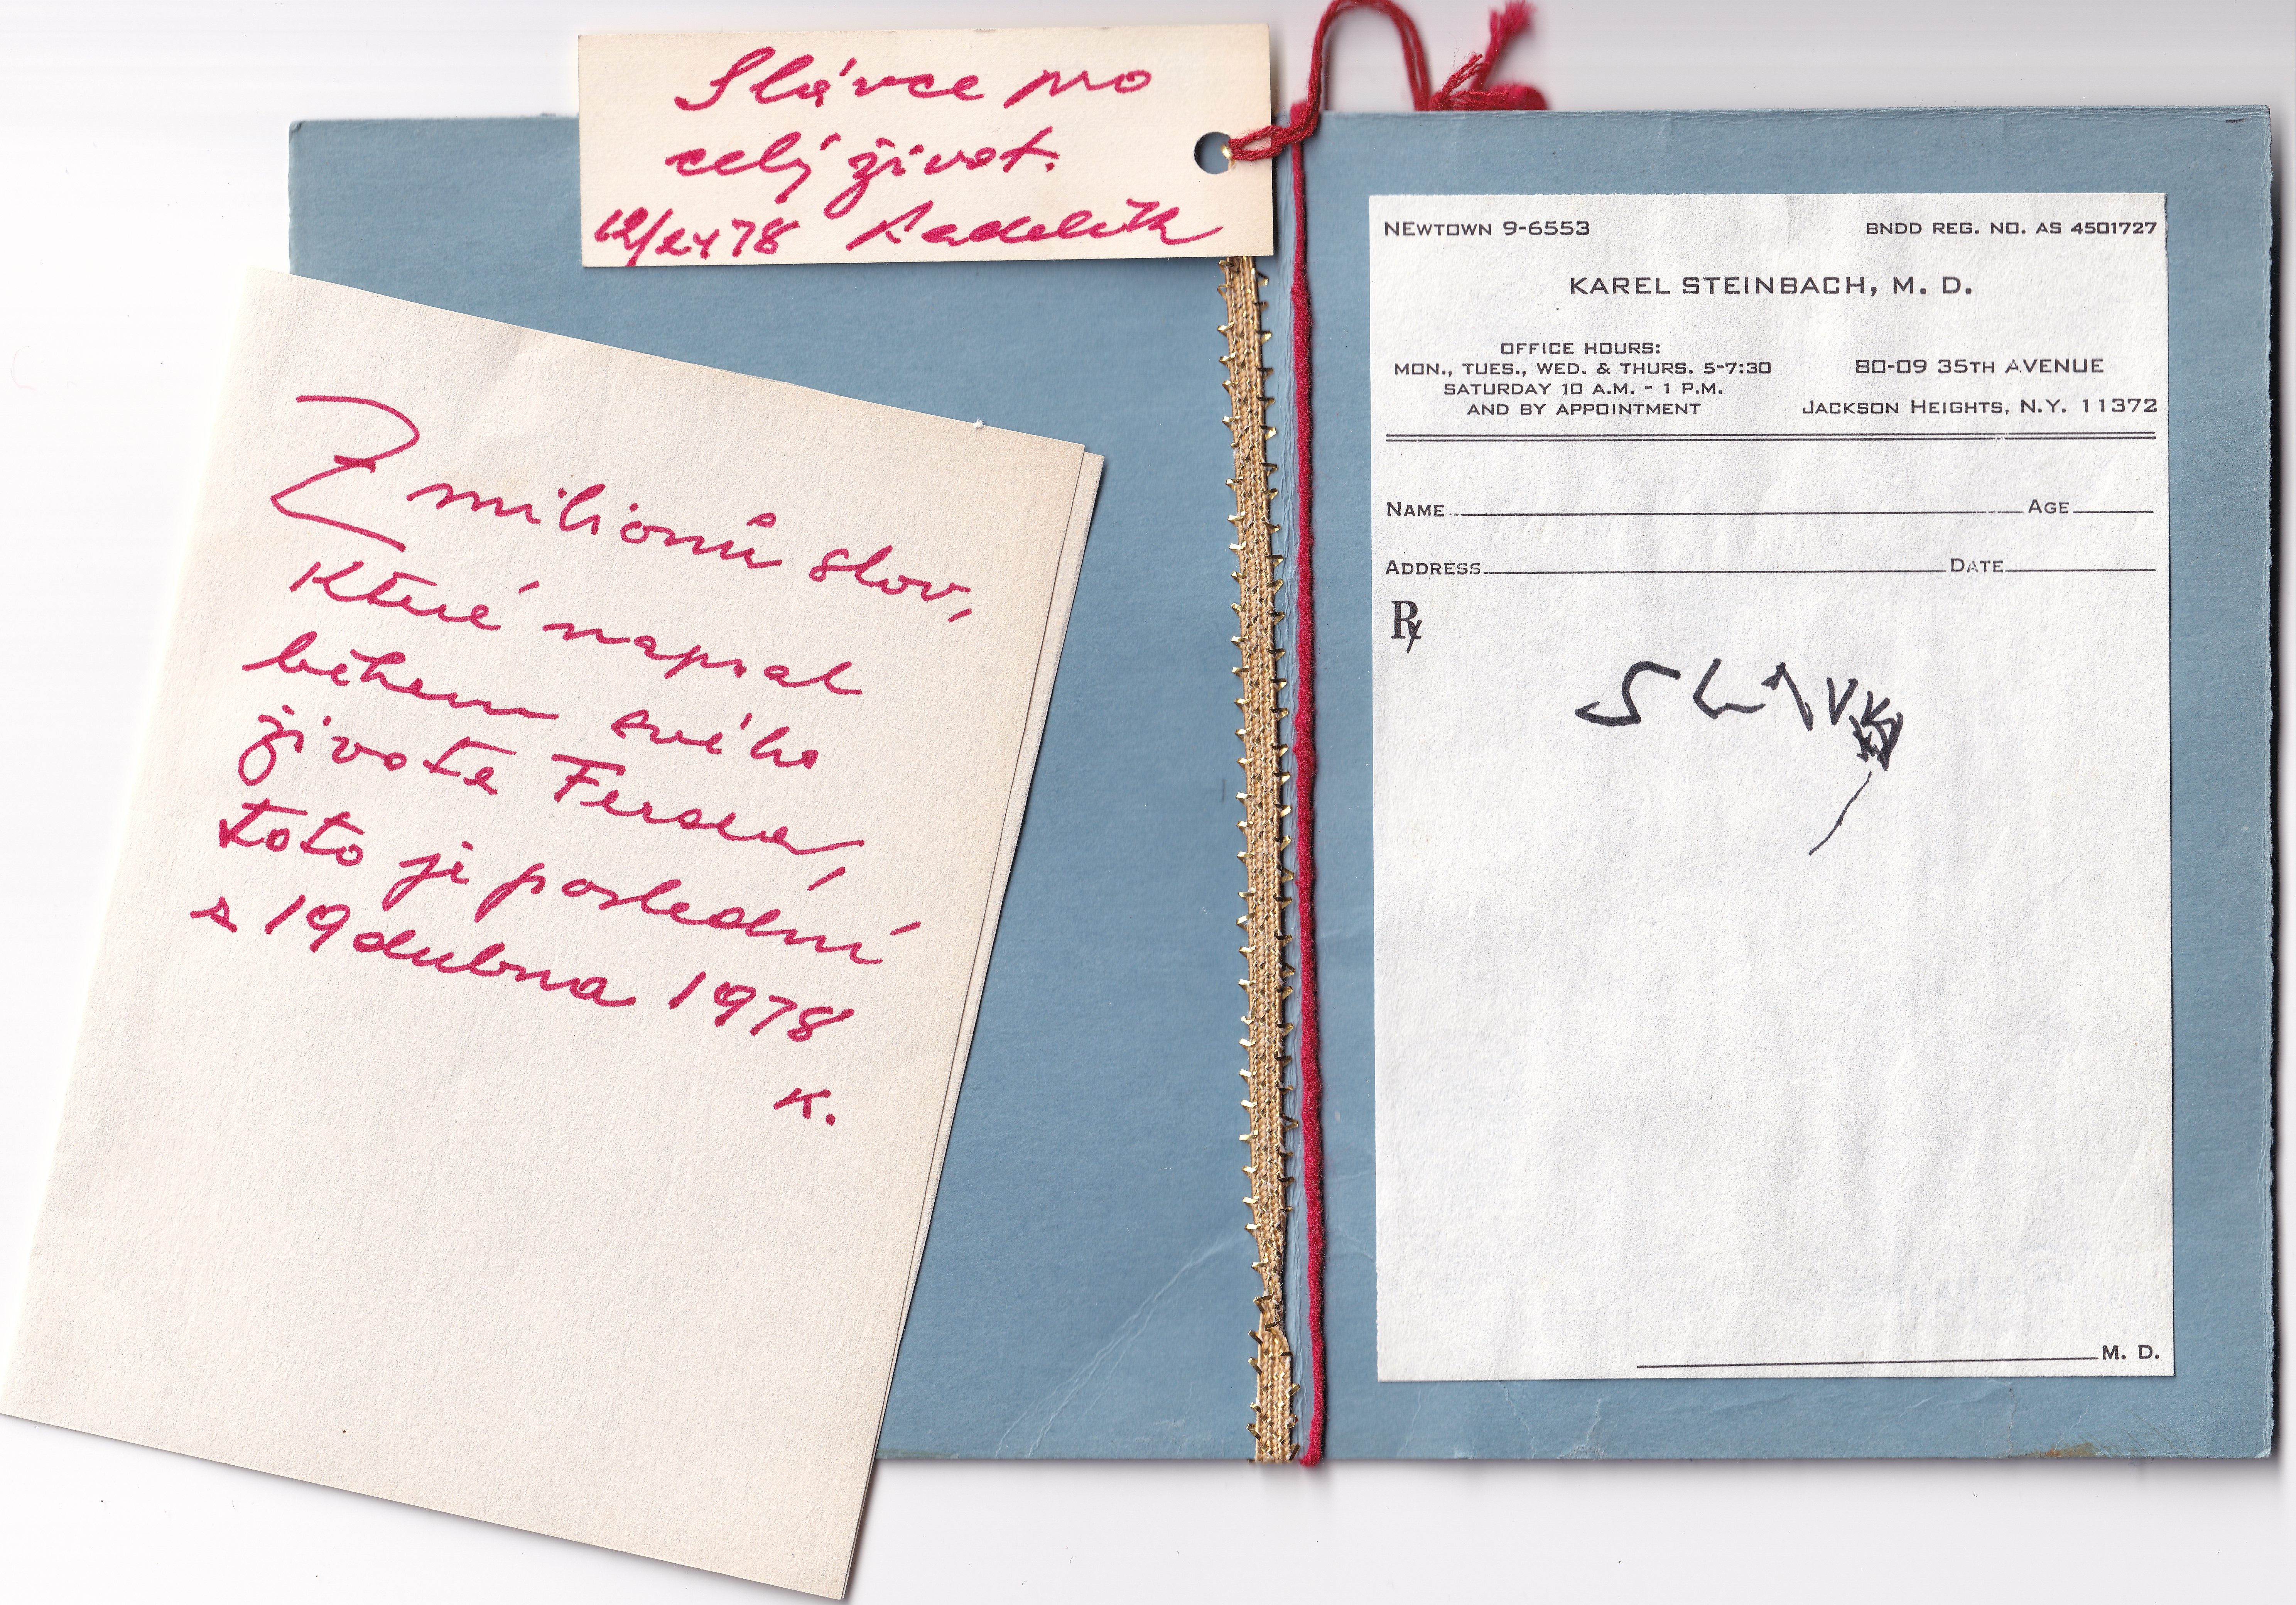 Slávce pro
celý život.
12/24 78
Z milionů slov,
Které napsal
během svého
života Ferda,
toto je poslední
z 19 dubna 1978
K.
NEWTOWN 9-6553
BNDD REG. NO. AS 4501727
KAREL STEINBACH, M. D.
OFFICE HOURS:
MON., TUES., WED. & THURS. 5-7:30
SATURDAY 10 A.M. - 1 P.M.
AND BY APPOINTMENT
80-09 35TH AVENUE
JACKSON HEIGHTS, N.Y. 11372
NAME AGE
ADDRESS DATE
℞
M. D.